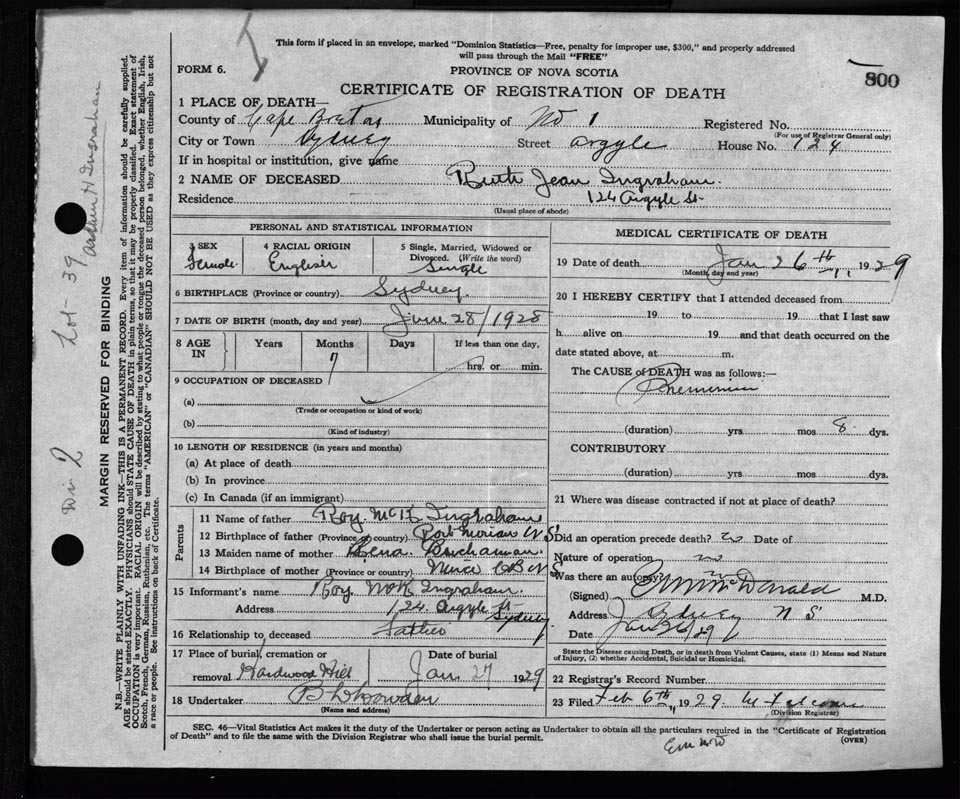 This form if placed in an envelope, marked "Dominion Statistics—Free, penalty for improper use, $300," and properly addressed
will pass through the Mail "FREE"
FORM 6.
PROVINCE OF NOVA SCOTIA
800
CERTIFICATE OF REGISTRATION OF DEATH
1 PLACE OF DEATH—
County of Cape Breton Municipality of No 1 Registered No.
(For use of Registrar General only)
City or Town Sydney Street Argyle House No. 124
If in hospital or institution, give name
2 NAME OF DECEASED Ruth Jean Ingraham.
Residence 124 Argyle St
(Usual place of abode)
PERSONAL AND STATISTICAL INFORMATION
3 SEX Female
4 RACIAL ORIGIN English
5 Single, Married, Widowed or Divorced. (Write the word) Single
6 BIRTHPLACE (Province or country) Sydney.
7 DATE OF BIRTH (month, day and year) June 28/1928
8 AGE IN Years Months 7 Days If less than one day, hrs. or min.
9 OCCUPATION OF DECEASED
(a)
(Trade or occupation or kind of work)
(b)
(Kind of industry)
10 LENGTH OF RESIDENCE (in years and months)
(a) At place of death
(b) In province
(c) In Canada (if an immigrant)
Parents
11 Name of father Roy. McK Ingraham
12 Birthplace of father (Province or country) Port Morien N S
13 Maiden name of mother Buchanan.
14 Birthplace of mother (Province or country) C B N S
15 Informant's name Roy. McK Ingraham.
Address 124 Argyle St Sydney
16 Relationship to deceased Father
17 Place of burial, cremation or removal Hardwood Hill
Date of burial Jan 27 1929
18 Undertaker
(Name and address)
MEDICAL CERTIFICATE OF DEATH
19 Date of death Jan 26th 1929
(Month, day and year)
20 I HEREBY CERTIFY that I attended deceased from
19 to 19 that I last saw
h alive on 19 and that death occurred on the
date stated above, at m.
The CAUSE of DEATH was as follows:—
(duration) yrs mos 8 dys.
CONTRIBUTORY
(duration) yrs mos dys.
21 Where was disease contracted if not at place of death?
Did an operation precede death? no Date of
Nature of operation no
Was there an autopsy? no
(Signed) McDonald M.D.
Address Sydney N S
Date Jan 26/29
State the Disease causing Death, or in death from Violent Causes, state (1) Means and Nature
of Injury, (2) whether Accidental, Suicidal or Homicidal.
22 Registrar's Record Number
23 Filed Feb 6th 1929
(Division Registrar)
SEC. 46—Vital Statistics Act makes it the duty of the Undertaker or person acting as Undertaker to obtain all the particulars required in the "Certificate of Registration
of Death" and to file the same with the Division Registrar who shall issue the burial permit.
(OVER)
MARGIN RESERVED FOR BINDING
N.B.—WRITE PLAINLY WITH UNFADING INK—THIS IS A PERMANENT RECORD. Every item of information should be carefully supplied.
AGE should be stated EXACTLY. PHYSICIANS should STATE CAUSE OF DEATH in plain terms, so that it may be properly classified. Exact statement of
OCCUPATION is very important. RACIAL ORIGIN will be described by stating to what people or tongue the deceased person belonged, whether English, Irish,
Scotch, French, German, Russian, Ruthenian, etc. The terms "AMERICAN" or "CANADIAN" SHOULD NOT BE USED as they express citizenship but not
a race or people. See instructions on back of Certificate.
Div 2 Lot - 39 Arthur H Ingraham